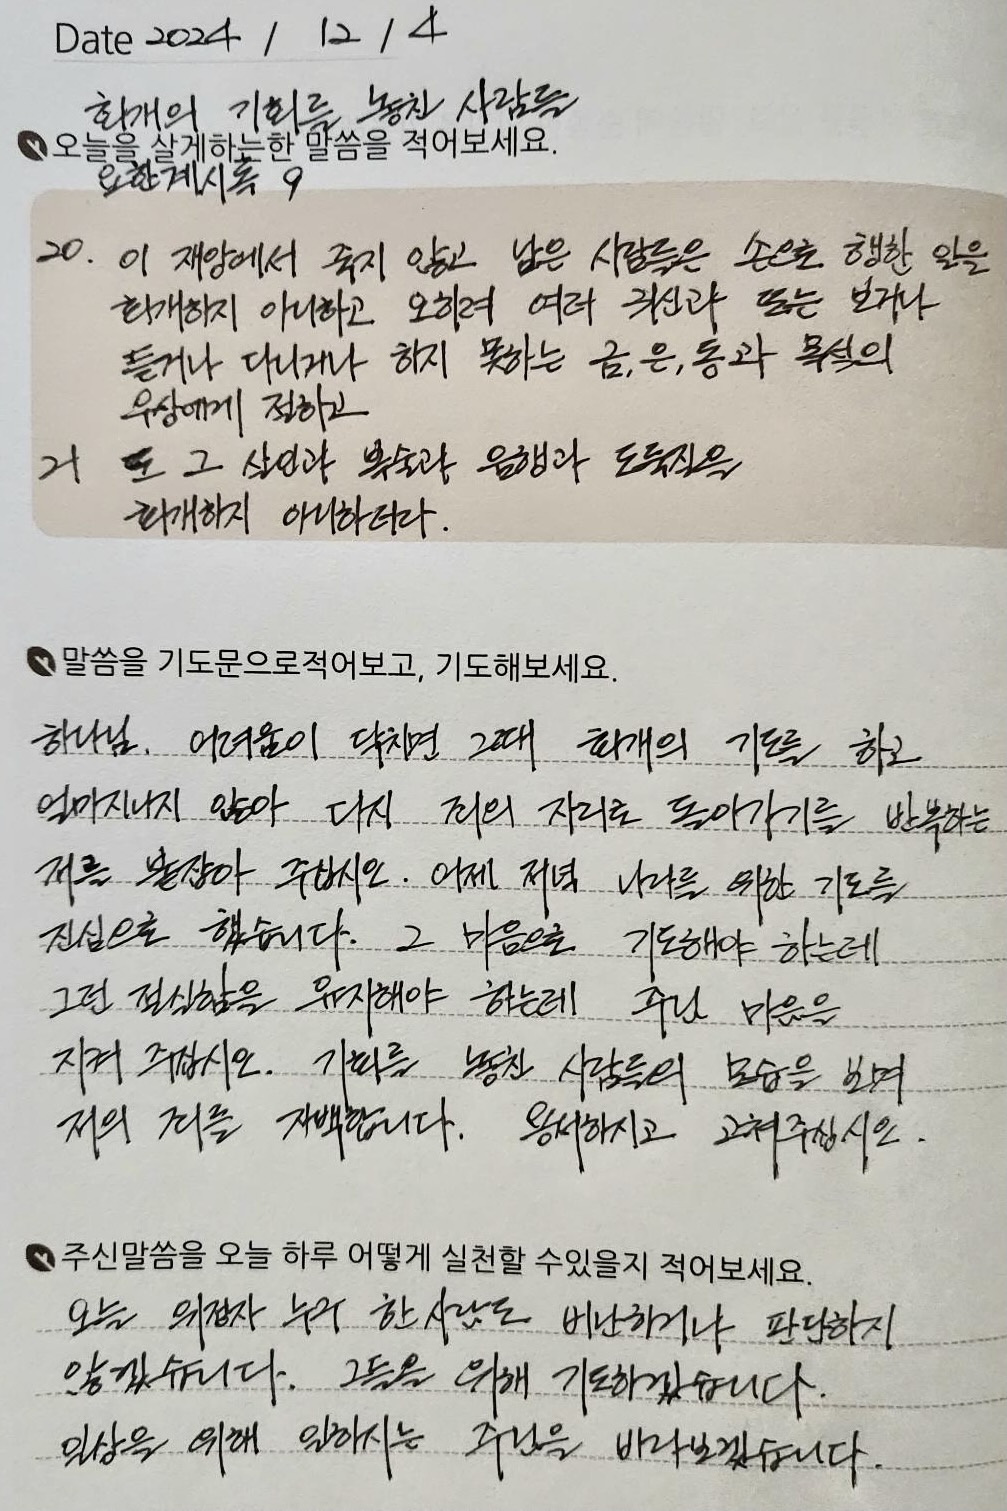 Date 2024 / 12 / 4
회개의 기회를 놓친 사람들
오늘을 살게하는한 말씀을 적어보세요.
요한계시록 9
20. 이 재앙에서 죽지 않고 남은 사람들은 손으로 행한 일을
회개하지 아니하고 오히려 여러 귀신과 또는 보거나
듣거나 다니거나 하지 못하는 금, 은, 동과 목석의
우상에게 절하고
21 또 그 살인과 복술과 음행과 도둑질을
회개하지 아니하더라.
말씀을 기도문으로적어보고, 기도해보세요.
하나님. 어려움이 닥치면 그때 회개의 기도를 하고
얼마지나지 않아 다시 죄의 자리로 돌아가기를 반복하는
저를 붙잡아 주십시오. 어제 저녁 나라를 위한 기도를
진심으로 했습니다. 그 마음으로 기도해야 하는데
그런 절실함을 유지해야 하는데 주님 마음을
지켜 주십시오. 기회를 놓친 사람들의 모습을 보며
저의 죄를 자백합니다. 용서하시고 고쳐주십시오.
주신말씀을 오늘 하루 어떻게 실천할 수있을지 적어보세요.
오늘 위정자 누구 한 사람도 비난하거나 판단하지
않겠습니다. 그들을 위해 기도하겠습니다.
위해 일하시는 주님을 바라보겠습니다.